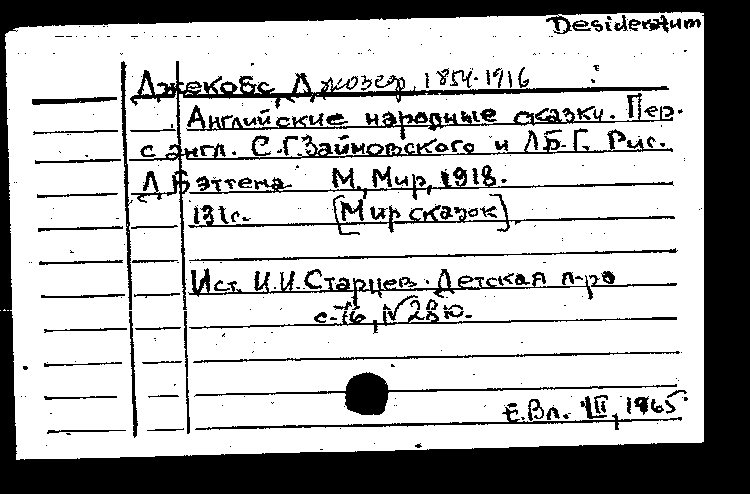 Desideratum
Джекобс, Джозеф, 1854-1916
Английские народные сказки. Пер.
с англ. С.Г.Займовского и Л.Б.Г. Рис.
Д.Бэттена М., Мир, 1918.
131с. [Мир сказок].
Ист. И.И.Старцев. Детская л-ра
с.76, N 2810.
Е.Вл. VII, 1965